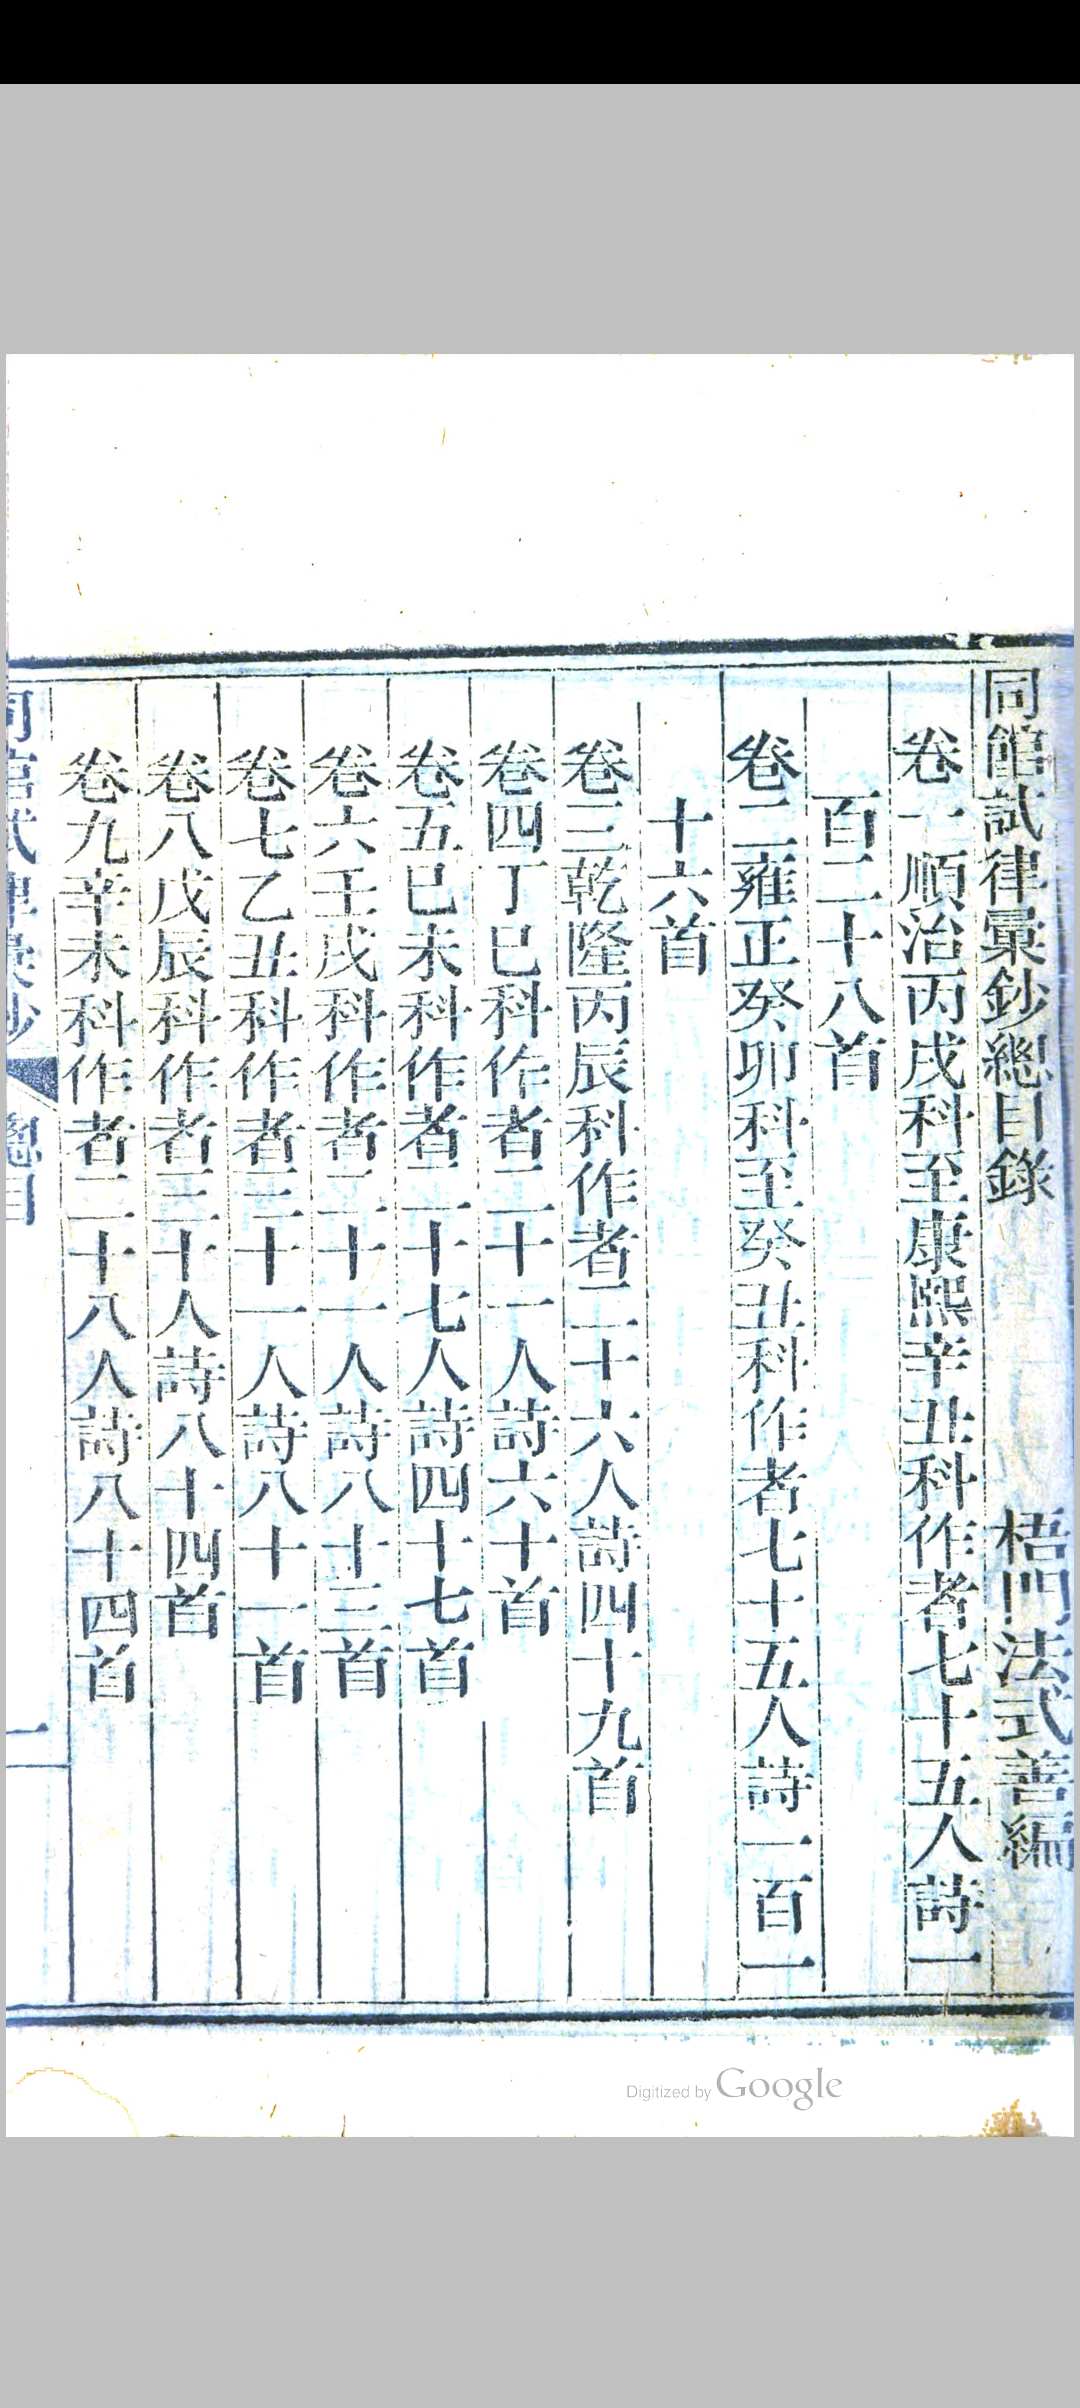 同館試律彙鈔總目錄
梧門法式善編
卷一順治丙戌科至康熙辛丑科作者七十五人詩一
百二十八首
卷二雍正癸卯科至癸丑科作者七十五人詩一百一
十六首
卷三乾隆丙辰科作者二十六人詩四十九首
卷四丁巳科作者二十一人詩六十首
卷五巳未科作者二十七人詩四十七首
卷六壬戌科作者二十一人詩八十三首
卷七乙丑科作者三十一人詩八十一首
卷八戊辰科作者三十人詩八十四首
卷九辛未科作者二十八人詩八十四首
同館試律彙鈔 總目 二
Digitized by Google